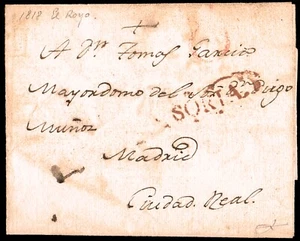 1818 El Royo.
A Dn. Tomas Garcia
Mayordomo del
SORIA
Muñoz
Madrid
Ciudad Real.